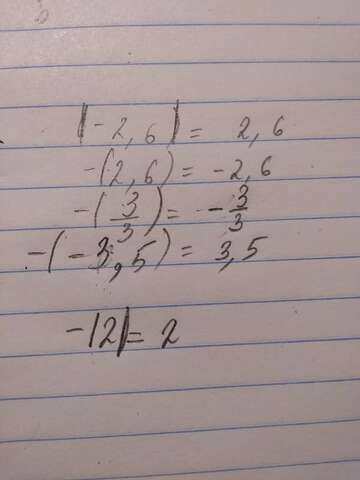 |-2,6| = 2,6
-(2,6) = -2,6
-(3/3) = -3/3
-(-3,5) = 3,5
-|2| = 2